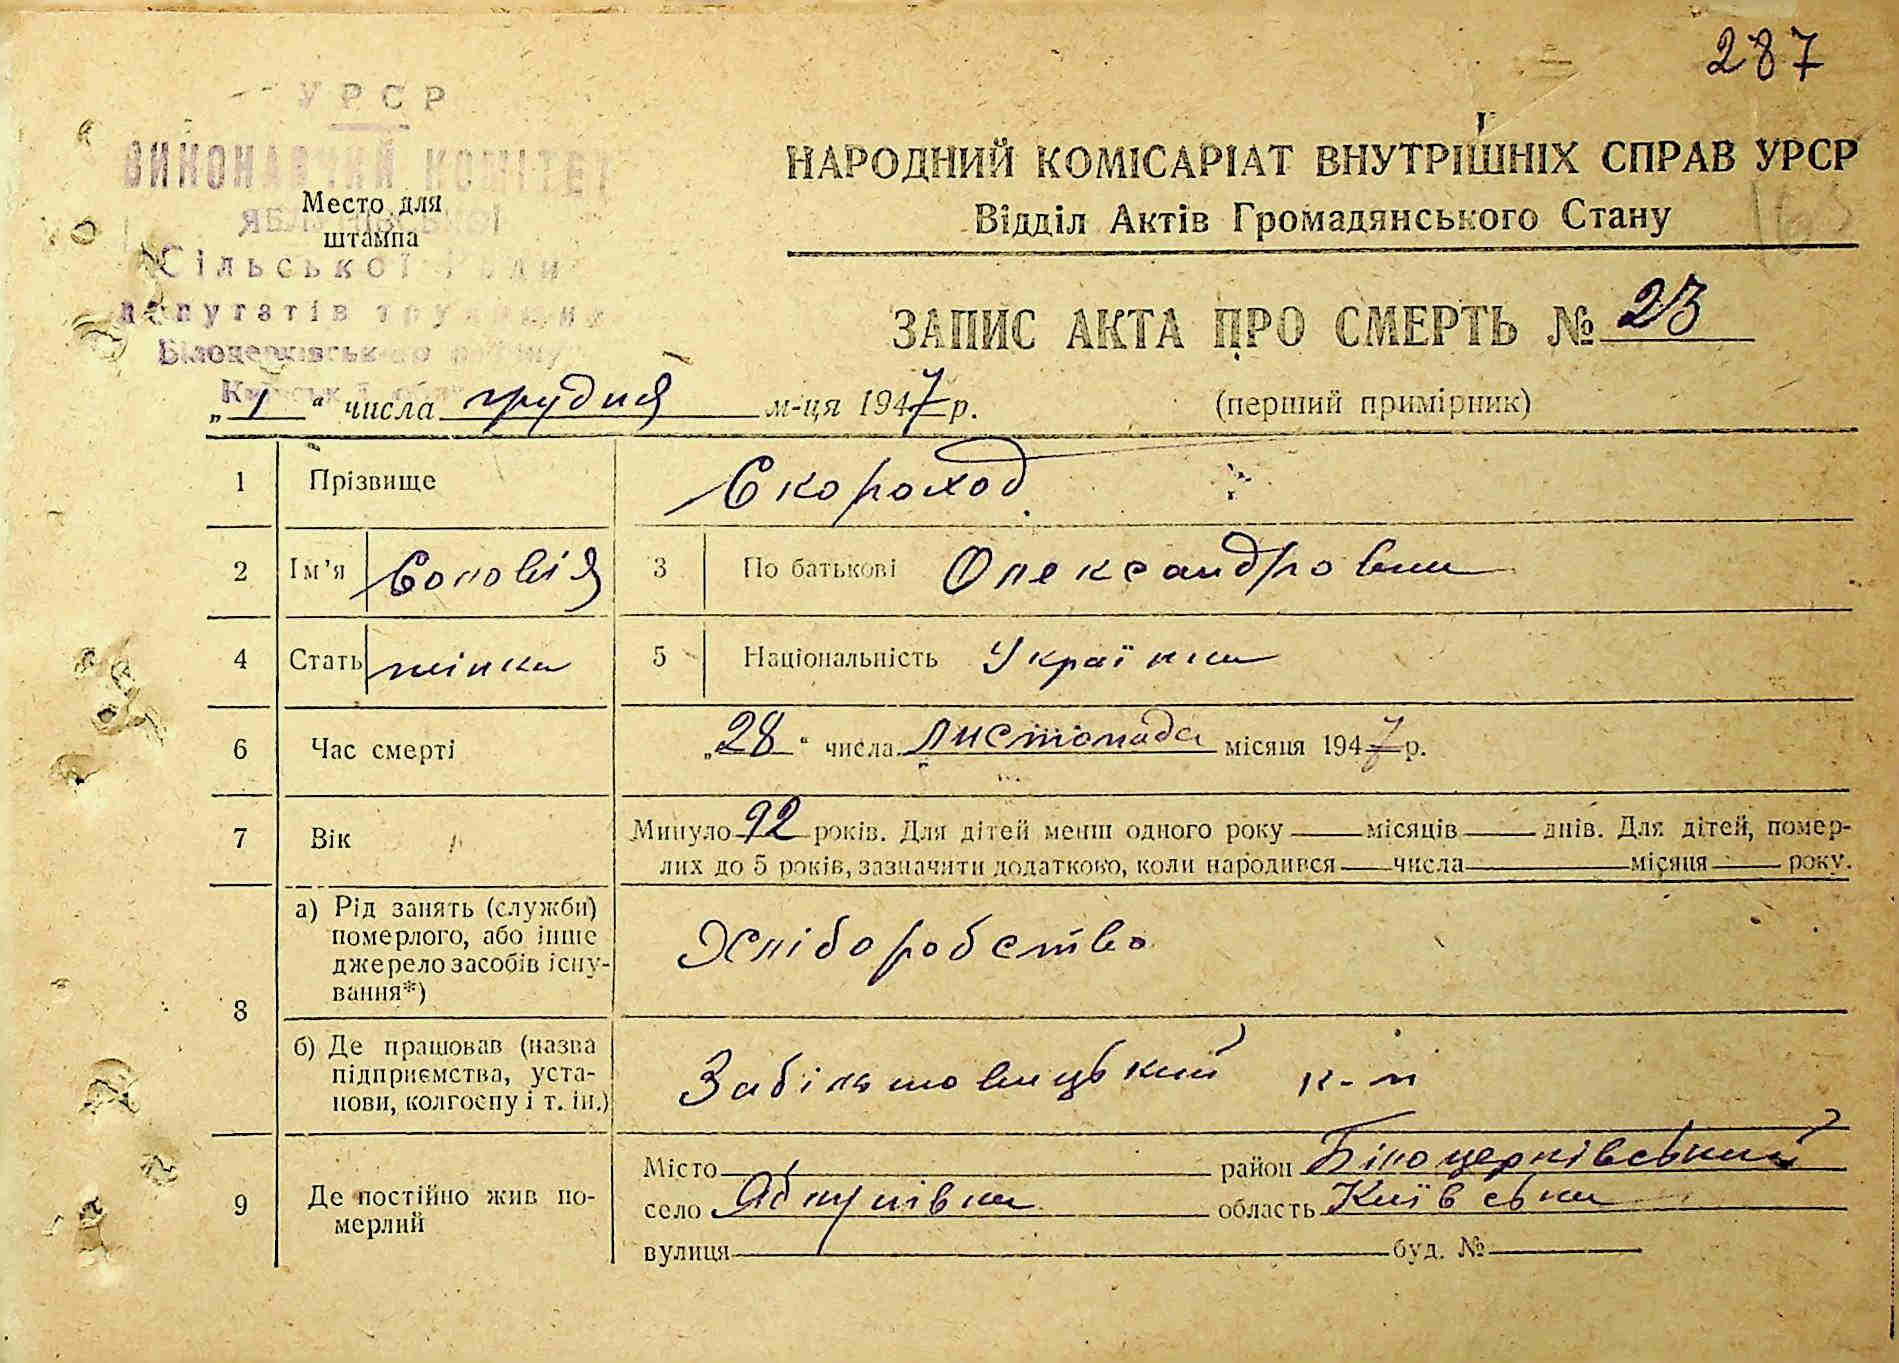 287
УРСР
ВИКОНАВЧИЙ КОМІТЕТ
Место для
штампа
Сільської Ради
депутатів трудящих
Білоцерківського району
НАРОДНИЙ КОМІСАРІАТ ВНУТРІШНІХ СПРАВ УРСР
Відділ Актів Громадянського Стану
ЗАПИС АКТА ПРО СМЕРТЬ № 23
„1“ числа грудня м-ця 1947 р. (перший примірник)
1 Прізвище Скороход
2 Ім’я Соловія 3 По батькові Олександровна
4 Стать жінка 5 Національність Українка
6 Час смерті „28“ числа листопада місяця 1947 р.
7 Вік Минуло 92 років. Для дітей менш одного року — місяців — днів. Для дітей, помер-
лих до 5 років, зазначити додатково, коли народився — числа — місяця — року.
8 а) Рід занять (служби)
померлого, або інше
джерело засобів існу-
вання*) Хліборобство
б) Де працював (назва
підприємства, уста-
нови, колгоспу і т. ін.) к-п
9 Де постійно жив по-
мерлий
Місто — район Білоцерківський
село Яблунівка область Київська
вулиця — буд. № —